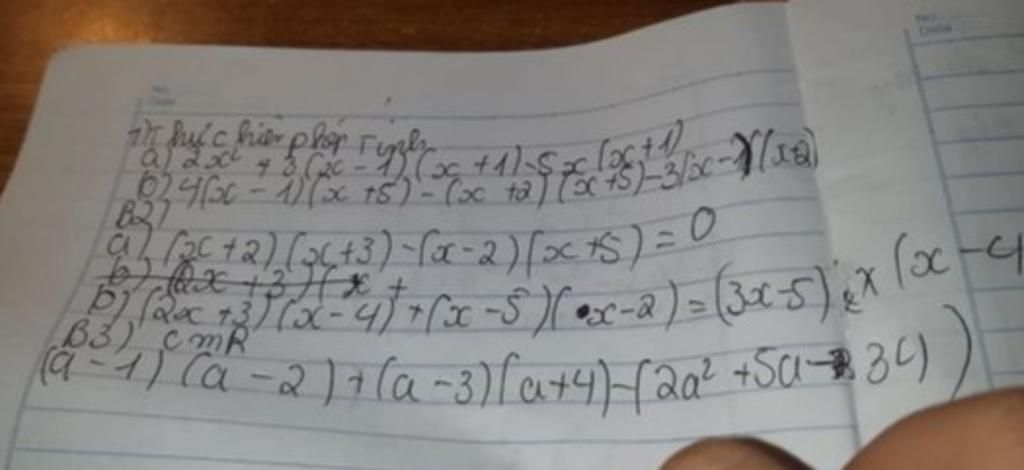 No.
Date
1) Thực hiện phép tính
a) 2x² + 3(x - 1)(x + 1) - 5x(x+1)
b) 4(x - 1)(x + 5) - (x + 2)(x + 5) - 3(x - 1)(x+2)
B2)
a) (x + 2)(x + 3) - (x - 2)(x + 5) = 0
b) (2x + 3)(x +
b) (2x + 3)(x - 4) + (x - 5)(x - 2) = (3x - 5) x (x - 4
B3) CMR
(a - 1)(a - 2) + (a - 3)(a + 4) - (2a² + 5a - 34)
No.
Date